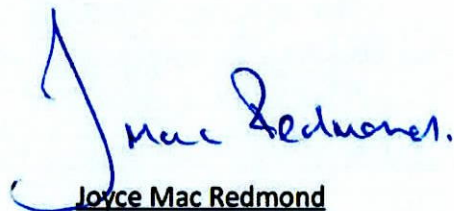 J Mac Redmond.
Joyce Mac Redmond